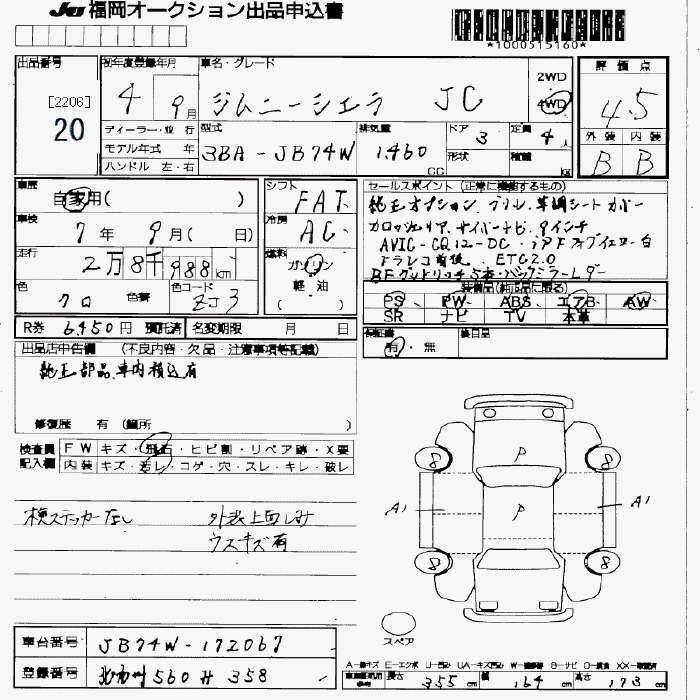 JU 福岡オークション出品申込書
*1000515160*
出品番号 初年度登録年月 車名・グレード 2WD 4WD 評価点
[2206] 20 4 9月 ジムニーシエラ JC 4.5
ディーラー・並行 型式 排気量 ドア 定員 外装 内装
モデル年式 年 3BA-JB74W 1,460 CC 3 4人 B B
ハンドル 左・右 形状 積載 kg
車歴 自家用( ) シフト FAT
車検 7年 9月( 日) 冷房 AC
走行 2万8千988km 燃料 ガソリン 軽油 ( )
色 クロ 色替 色コード ZJ3
セールスポイント (正常に機能するもの)
純正オプション グリル、車調シートカバー
カロッツェリア、サイバーナビ、9インチ
AVIC-CQ12-DC
ドラレコ前後、ETC2.0
BFグッドリッチ5本
装備品(純正品に限る)
PS PW ABS エアB AW
SR ナビ TV 本革
保証書 有・無 後日品
R券 6,450円 預託済 名変期限 月 日
出品店申告欄 (不良内容・欠品・注意事項等記載)
純正部品、車内積込有
修復歴 有(箇所 )
検査員 FW キズ・飛石・ヒビ割・リペア跡・X要
記入欄 内装 キズ・汚レ・コゲ・穴・スレ・キレ・破レ
検ステッカーなし 外装上面しみ
ウスキズ有
8 P 8
A1 P A1
8 8
スペア
車台番号 JB74W-172067
登録番号 北九州 560 H 358
A-線キズ E-エクボ U-凹み
長さ 355cm 幅 164cm 高さ 173cm